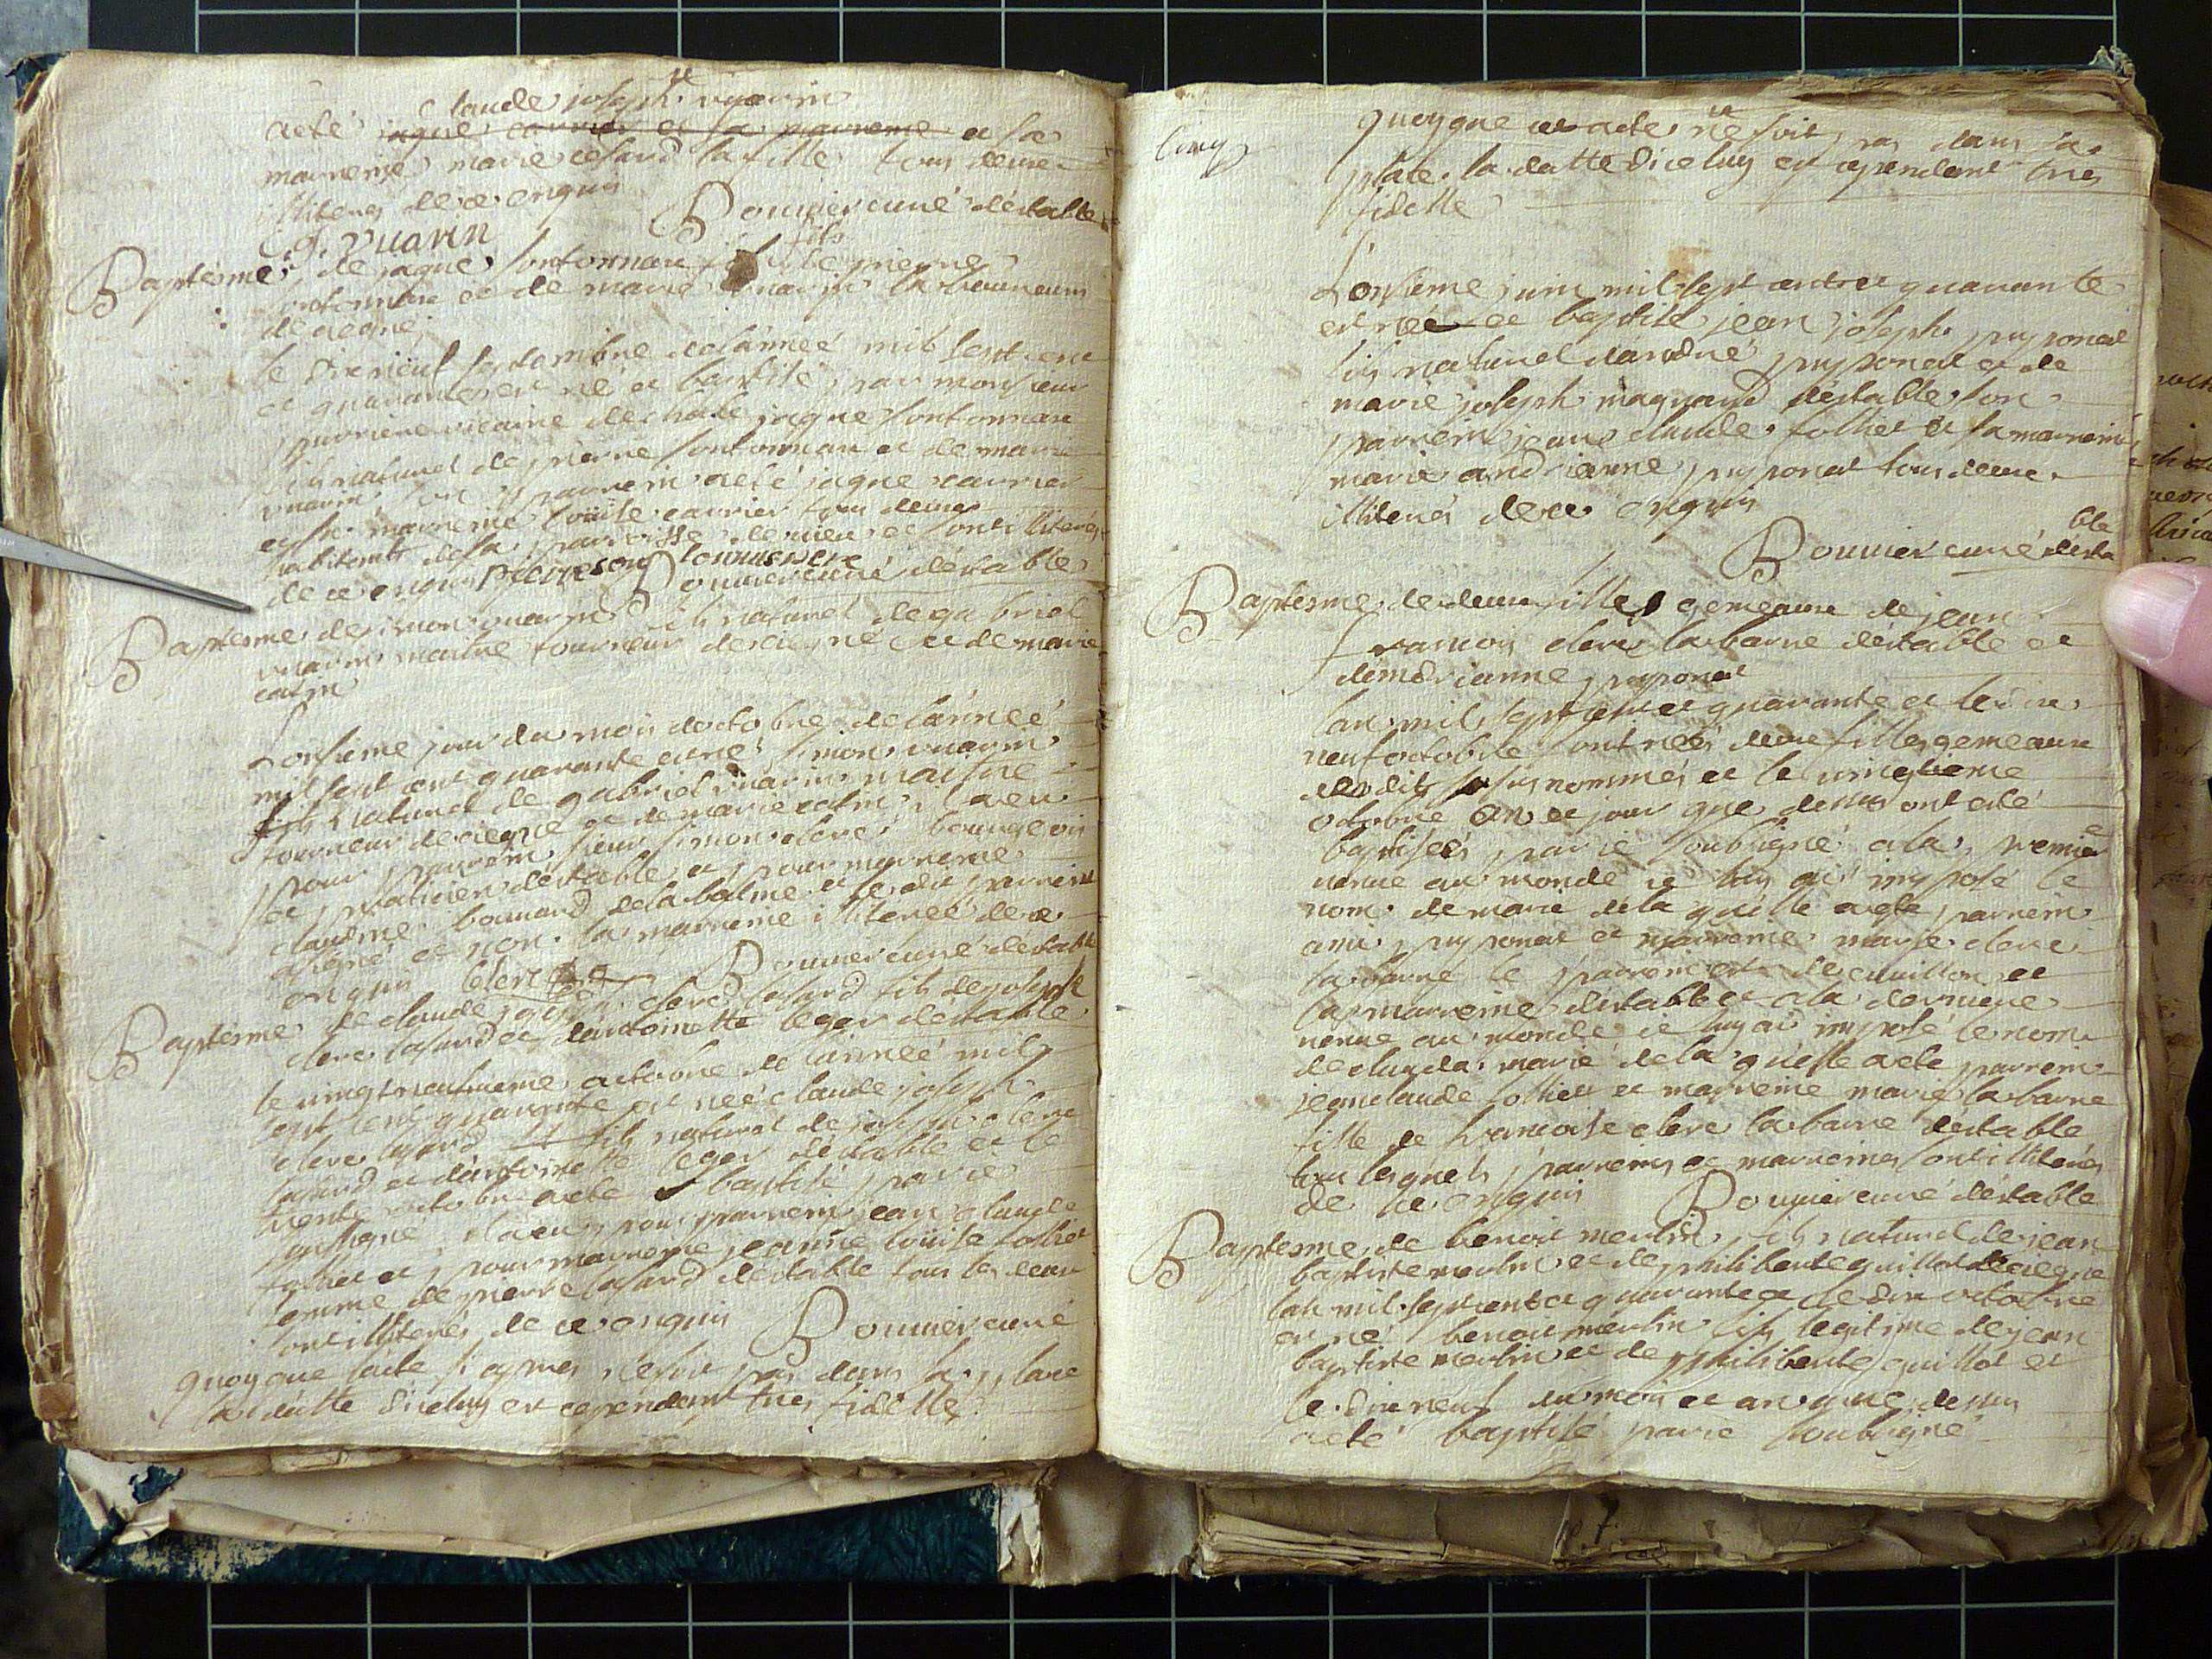 Claude joseph vuarin
acté jaque carrier et sa marreine et sa
marreine marie cesard la fille tous deux
illiterés de ce enquis
Bouvier curé déstable
C. J. vuarin
Baptesme de jaque sontonnax fils de pierre
sontonnax et de marie vuarin laboureurs
de ciegne
le dixneuf septembre de lánneé mil sept cent
et quarante est né et baptisé par monsieur
vicaire de chale jaque sontonnax
fils naturel de pierre sontonnax et de marie
vuarin son parrein acté jaque carrier
et sa marreine loüise carrier tous deux
habitants de la parroisse de et sont illiterés
de ce enquis
Bouvier curé déstable
Baptesme de simon vuarin fils naturel de gabriel
vuarin maitre tourneur de ciegne et de marie
catin
Lonsieme jour du mois doctobre de lánneé
mil sept cent quarante est né simon vuarin
fils naturel de gabriel vuarin maitre
tourneur de ciegne et de marie catin il a eu
pour parrein sieur simon clerc bourgeois
et praticien déstable et pour marreine
claudine bonnard de la balme et le dit parrein
a signé et non la marreine illitereé de ce
enquis Clerc Bouvier curé déstable
Baptesme de claude joseph clerc cesard fils de joseph
clerc cesard et dántoinette leger déstable
le vingtneufvieme octobre de lánneé mil
sept cent quarante est né claude joseph
clerc cesard fils naturel de joseph clerc
cesard et dántoinette leger déstable et le
trente octobre acté baptisé par je
soussigné il a eu pour parrein jean claude
follet et pour marreine jeanne loüise follet
femme de pierre cesard déstable tous les deux
sont illiterés de ce enquis Bouvier curé
quoyque lacte sy apres ne soit pas dans sa place
la datte diceluy est cependant tres fidelle
Cinq
quoyque cet acte ne soit pas dans sa
place la datte diceluy est cependant tres
fidelle
Lonsieme juin mil sept cent et quarante
est né et baptisé jean joseph puponat
fils naturel dándré puponat et de
marie joseph magnand déstable son
parrein jean claude follet et sa marreine
marie andrianne puponat tous deux
illiterés de ce enquis
Bouvier curé déstable
Baptesme de deux filles gemeaux de jean
francois clerc labarre déstable et
dandrianne puponat
lan mil sept cent et quarante et le dix
neuf octobre sont neés deux filles gemeaux
des dits susnommés et le vingtieme
octobre an et jour que dessus ont été
baptiseés par je soubsigné a la premiere
venue au monde je luy ai imposé le
nom de marie de la quelle acté parrein
ami puponat et marreine marie clerc
labarre le parrein est de cuvillon et
la marreine déstable et a la derniere
venue au monde je luy ai imposé le nom
de clauda marie de la quelle acté parrein
jean claude follet et marreine marie labarre
fille de francoise clerc labarre déstable
tous lesquels parreins et marreines sont illiterés
de ce enquis Bouvier curé déstable
Baptesme de benoit meulin fils naturel de jean
baptiste meulin et de philiberte guillot de ciegne
lan mil sept cent et quarante et le dix octobre
est né benoit meulin fils legitime de jean
baptiste meulin et de philiberte guillot et
le dixneuf du mois et an que dessus
acté baptisé par je soubsigné